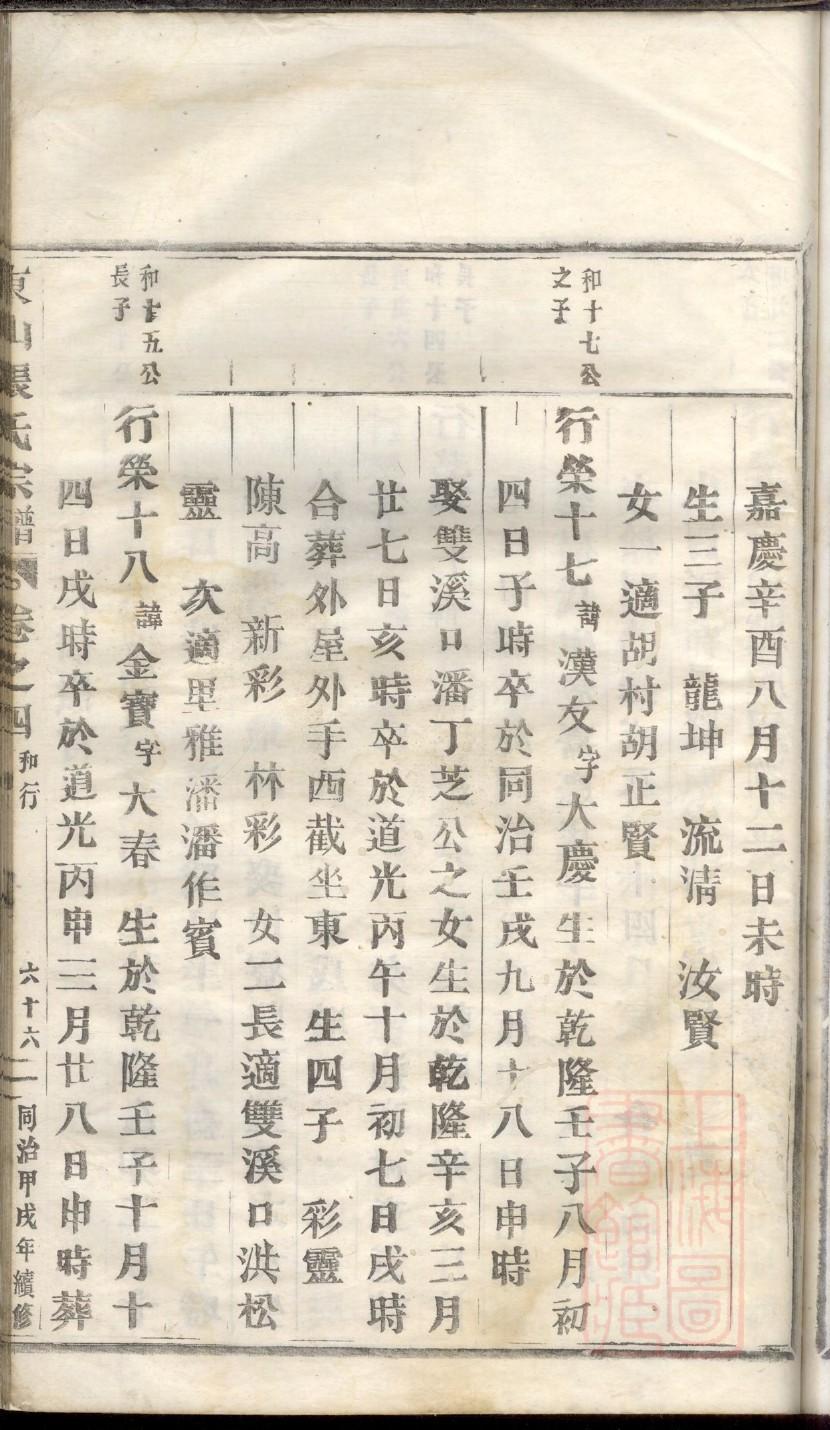 嘉慶辛酉八月十二日未時
生三子 龍坤 流清 汝賢
女一適胡村胡正賢
和十七公
之子
行榮十七 諱漢友 字大慶 生於乾隆壬子八月初
四日子時卒於同治壬戌九月十八日申時
娶雙溪口潘丁芝公之女生於乾隆辛亥三月
廿七日亥時卒於道光丙午十月初七日戌時
合葬外屋外手酉截坐東 生四子 彩靈
陳高 新彩 林彩 女二長適雙溪口洪松
靈 次適里雅潘潘作賓
和十五公
長子
行榮十八 諱金寶 字大春 生於乾隆壬子十月十
四日戌時卒於道光丙申三月廿八日申時葬
東山張氏宗譜 卷之四 和行 六十六 同治甲戌年續修
上海圖書館藏